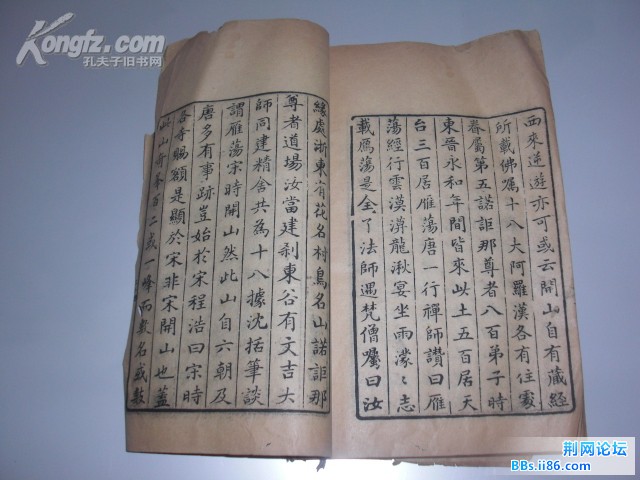 Kongfz.com
孔夫子旧书网
西來遊亦可或云開山自有藏經
所載佛囑十八大阿羅漢各有住處
眷屬第五諾詎那尊者八百弟子時
東晉永和年間皆來此土五百居天
台三百居雁蕩唐一行禪師讚曰雁
蕩經行雲漠漠龍湫宴坐雨濛〻志
載鴈蕩是全了法師遇梵僧囑曰汝
緣處浙東有花名村鳥名山諾詎那
尊者道場汝當建剎東谷有文吉大
師同建精舍共為十八據沈括筆談
謂雁蕩宋時開山然此山自六朝及
唐多有事跡豈始於宋程浩曰宋時
賜額是顯於宋非宋開山也蓋
山奇峯百二或一峰而數名或數
荆网论坛
BBs.ii86.com